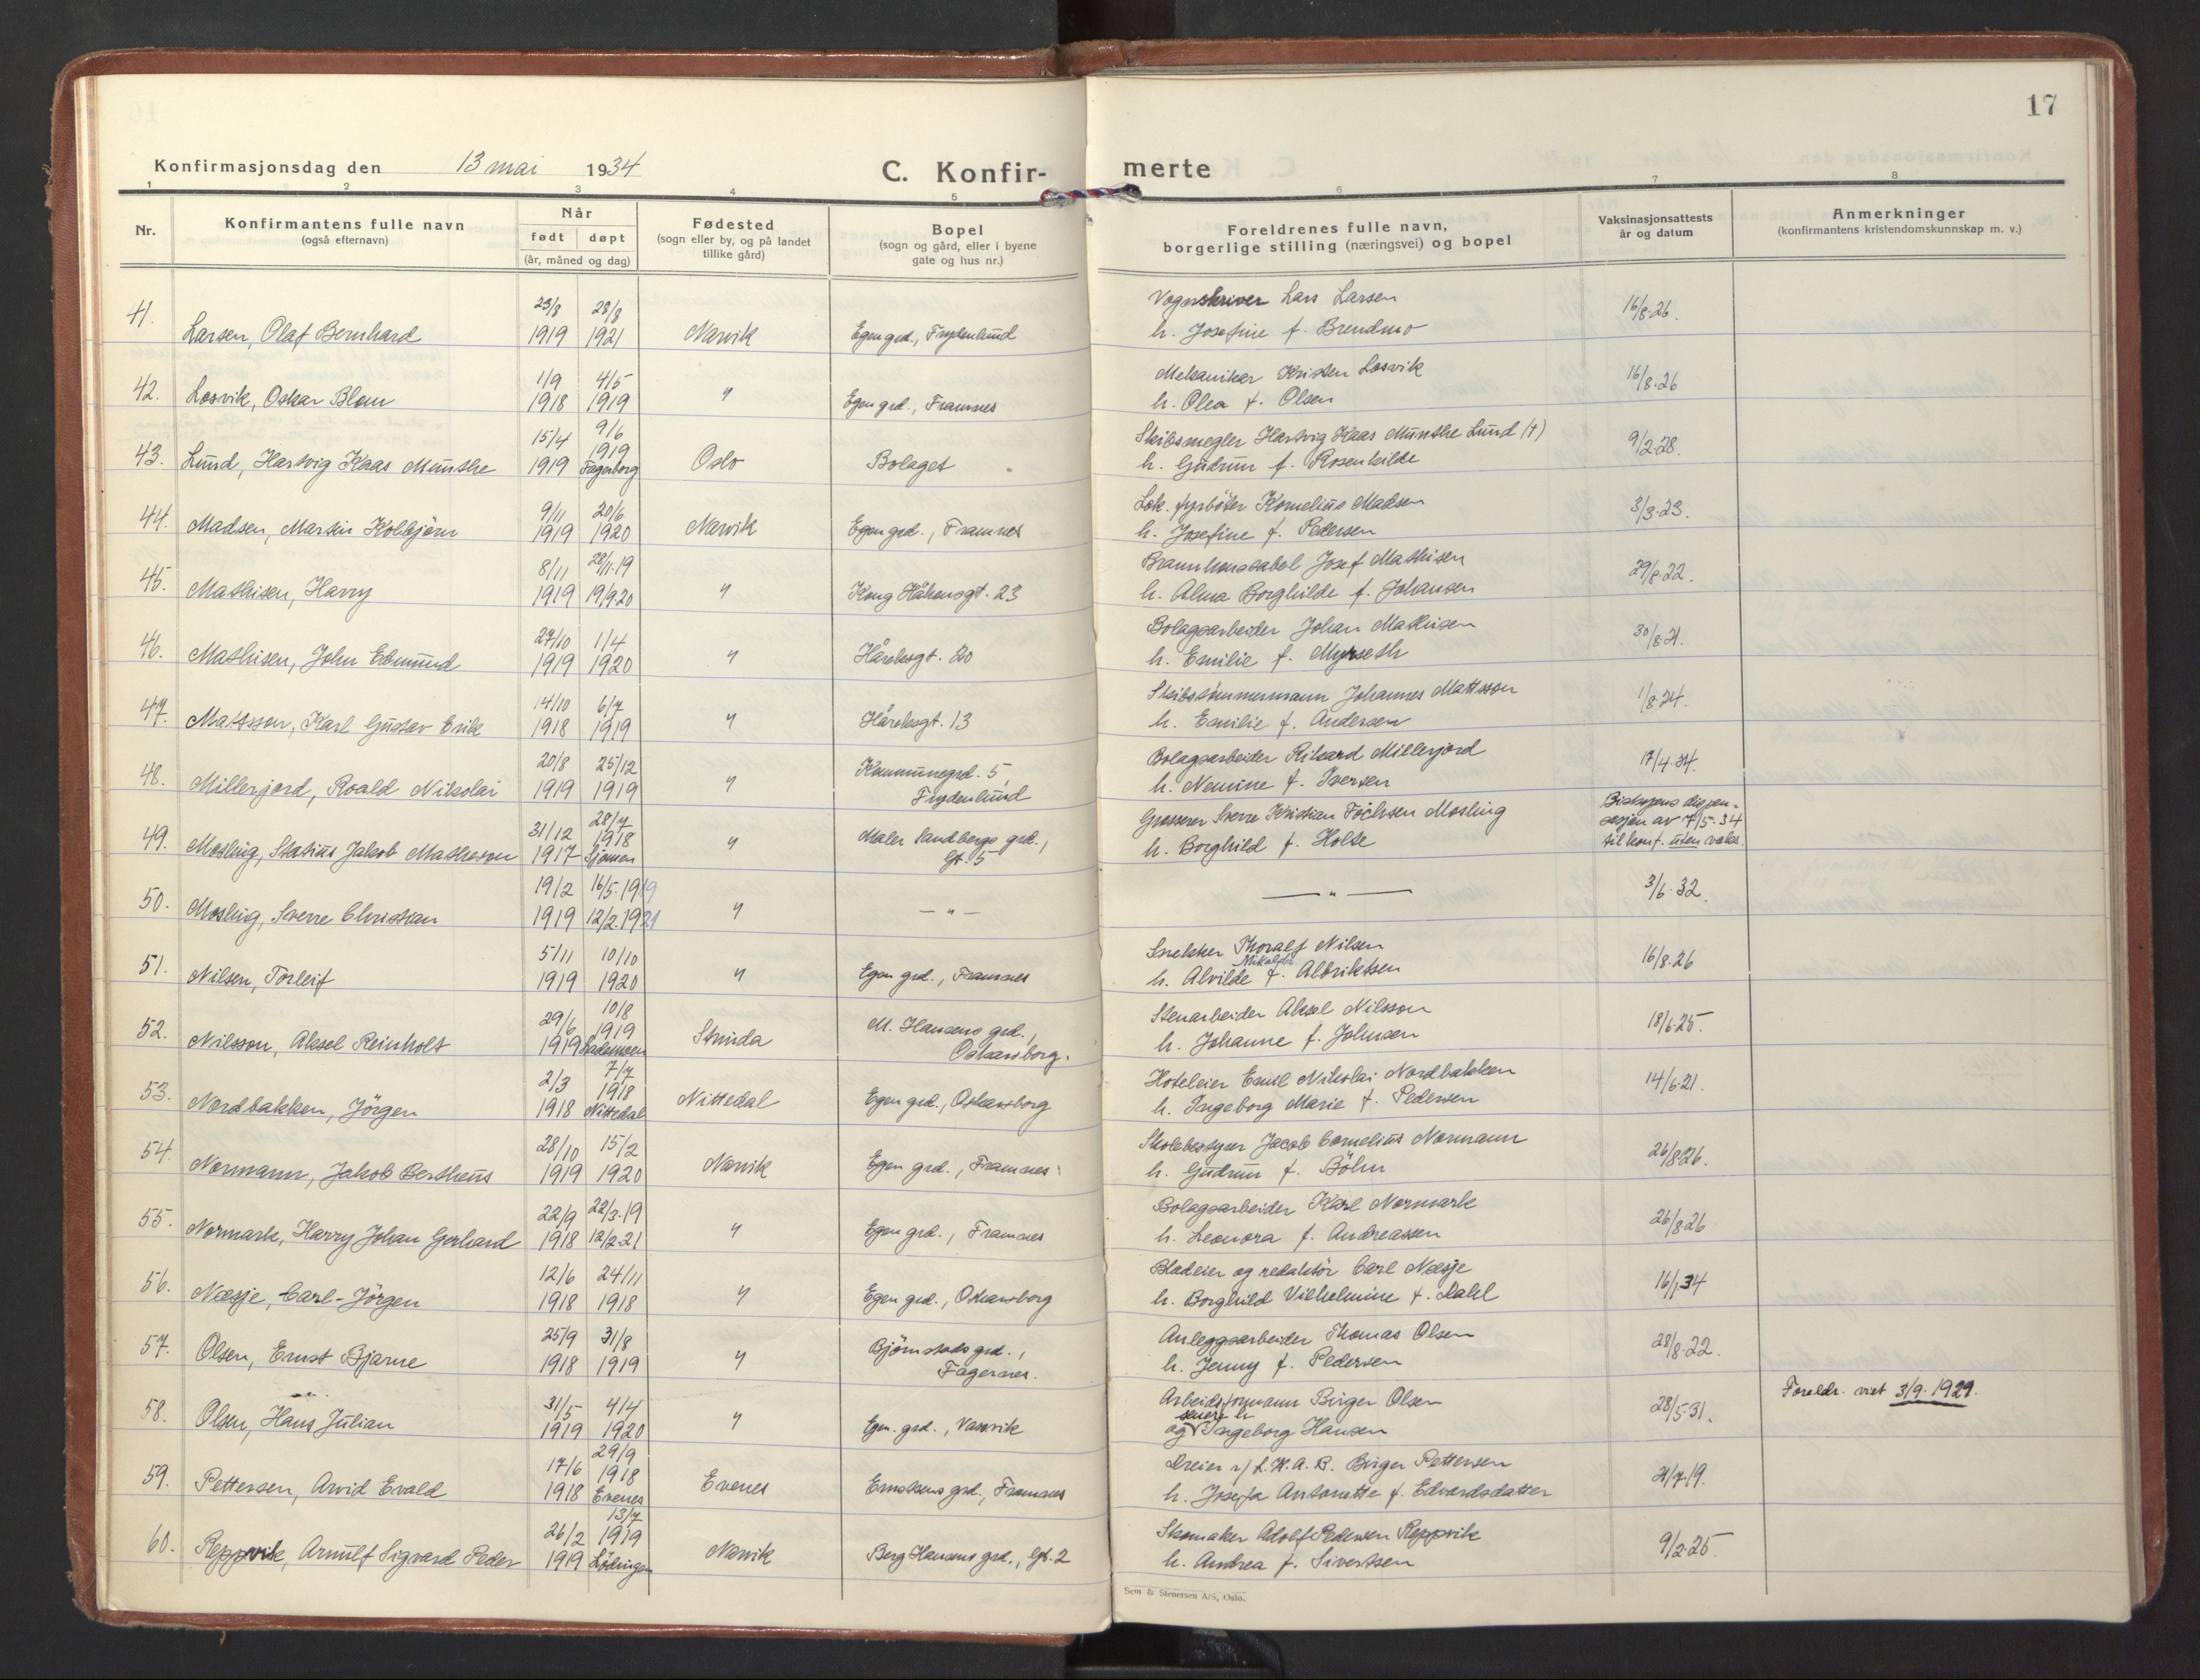 17
Konfirmasjonsdag den 13 mai 1934
C. Konfir-
merte
1 2 3 4 5 6 7 8
Nr.
Konfirmantens fulle navn
(også efternavn)
Når
født døpt
(år, måned og dag)
Fødested
(sogn eller by, og på landet
tillike gård)
Bopel
(sogn og gård, eller i byene
gate og hus nr.)
Foreldrenes fulle navn,
borgerlige stilling (næringsvei) og bopel
Vaksinasjonsattests
år og datum
Anmerkninger
(konfirmantens kristendomskunnskap m. v.)
41. 23/8 28/8 Vognskriver Lars Larsen 16/8.26.
Larsen, Olaf Bernhard 1919 1921 Narvik Egen grd., Frydenlund h. Josefine f. Brendmo
42. 1/9 4/5 Mekaniker Kristen Losvik 16/8.26
Losvik, Oskar Blom 1918 1919 " Egen grd., Framnes h. Olea f. Olsen
43. 15/4 9/6 1919 Skibsmegler Hartvig Kaas Munthe Lund (†) 9/2.28.
Lund, Hartvig Kaas Munthe 1919 Fagerborg Oslo Bolaget h. Gudrun f. Rosenkilde
44. 9/11 20/6 Lok. fyrbøter Kornelius Madsen 3/3.23.
Madsen, Martin Kolbjörn 1919 1920 Narvik Egen grd., Framnes h. Josefine f. Pedersen
45. 8/11 28/11.19 Josef Mathisen 29/8.22.
Mathisen, Harry 1919 19/9.20 " Kong Håkonsgt. 23 h. Alma Borghilde f. Johansen
46. 27/10 1/4 Bolagsarbeider Johan Mathisen 30/8.21.
Mathisen, John Edmund 1919 1920 " Håreksgt. h. Emilie f. Myrseth
47. 14/10 6/7 Skibstømmermann Johannes Mattsson 1/8.24.
Mattsson, Karl Gustav Erik 1918 1919 " Håreksgt. 13 h. Emilie f. Andersen
48. 20/8 25/12 Kommunegrd. 5, Bolagsarbeider Rikard Millerjord 17/4.34.
Millerjord, Roald Nikolai 1919 1919 " Frydenlund h. Nemine f. Iversen
49. 31/12 28/7 1918 Maler Sandbergs grd., Grosserer Sverre Kristian Mosling Biskopens dispen-
sasjon av 7/5.34
Mosling, Statius Jakob Matheson 1917 " Gt. 5 h. Borghild f. Holte til konf. uten vaks.
50. 19/2 16/5.1919 — " — 3/6.32.
Mosling, Sverre Christian 1919 12/2.1921 " — " —
51. 5/11 10/10 Snekker Thoralf Nilsen 16/8.26
Nilsen, Torleif 1919 1920 " Egen grd., Framnes h. Alvilde Nikoline f. Albriktsen
52. 29/6 10/8 1919 M. Hansens grd., Stenarbeider Aksel Nilsson 18/6.25.
Nilsson, Aksel Reinholt 1919 Strinda Oskarsborg. h. Johanne f. Johnsen
53. 2/3 7/7 1918 Hoteleier Emil Nikolai Nordbakken 14/6.21.
Nordbakken, Jörgen 1918 Nittedal Nittedal Egen grd., Oskarsborg h. Ingeborg Marie f. Pedersen
54. 28/10 15/2 Skolebestyrer Jacob Cornelius Normann 26/8.26.
Normann, Jakob Bertheus 1919 1920 Narvik Egen grd., Framnes h. Gudrun f. Böhn
55. 22/9 22/3.19 Bolagsarbeider Karl Normark 26/8.26
Normark, Harry Johan Gerhard 1918 12/2.21 " Egen grd., Framnes h. Leonora f. Andreassen
56. 12/6 24/11 Bladeier og redaktör Carl Næsje 16/1.34
Næsje, Carl-Jörgen 1918 1918 " Egen grd., Oskarsborg h. Borghild Vilhelmine f. Dahl
57. 25/9 31/8 Björnstads grd., Anleggsarbeider Thomas Olsen 28/8.22.
Olsen, Ernst Bjarne 1918 1919 " Fagernes. h. Jenny f. Pedersen
58. 31/5 4/4 Arbeidsformann Birger Olsen 28/5.31. Foreldr. viet 3/9.1921.
Olsen, Hans Julian 1919 1920 " Egen grd., Vassvik og senere h. Ingeborg Hansen
59. 17/6 29/9 1918 Dreier v/ L.K.A.B. Birger Pettersen 21/7.19.
Pettersen, Arvid Evald 1918 Evenes Evenes Ernstsens grd., Framnes h. Josefa Antonette f. Edvardsdatter
60. 26/2 13/7 1919 Skomaker Adolf Pedersen Reppvik 9/2.25.
Reppvik, Arnulf Sigvard Peder 1919 Lödingen Narvik Berg Hansens grd., Gt. 2 h. Andrea f. Sivertsen
Sem & Stenersen A/S, Oslo.